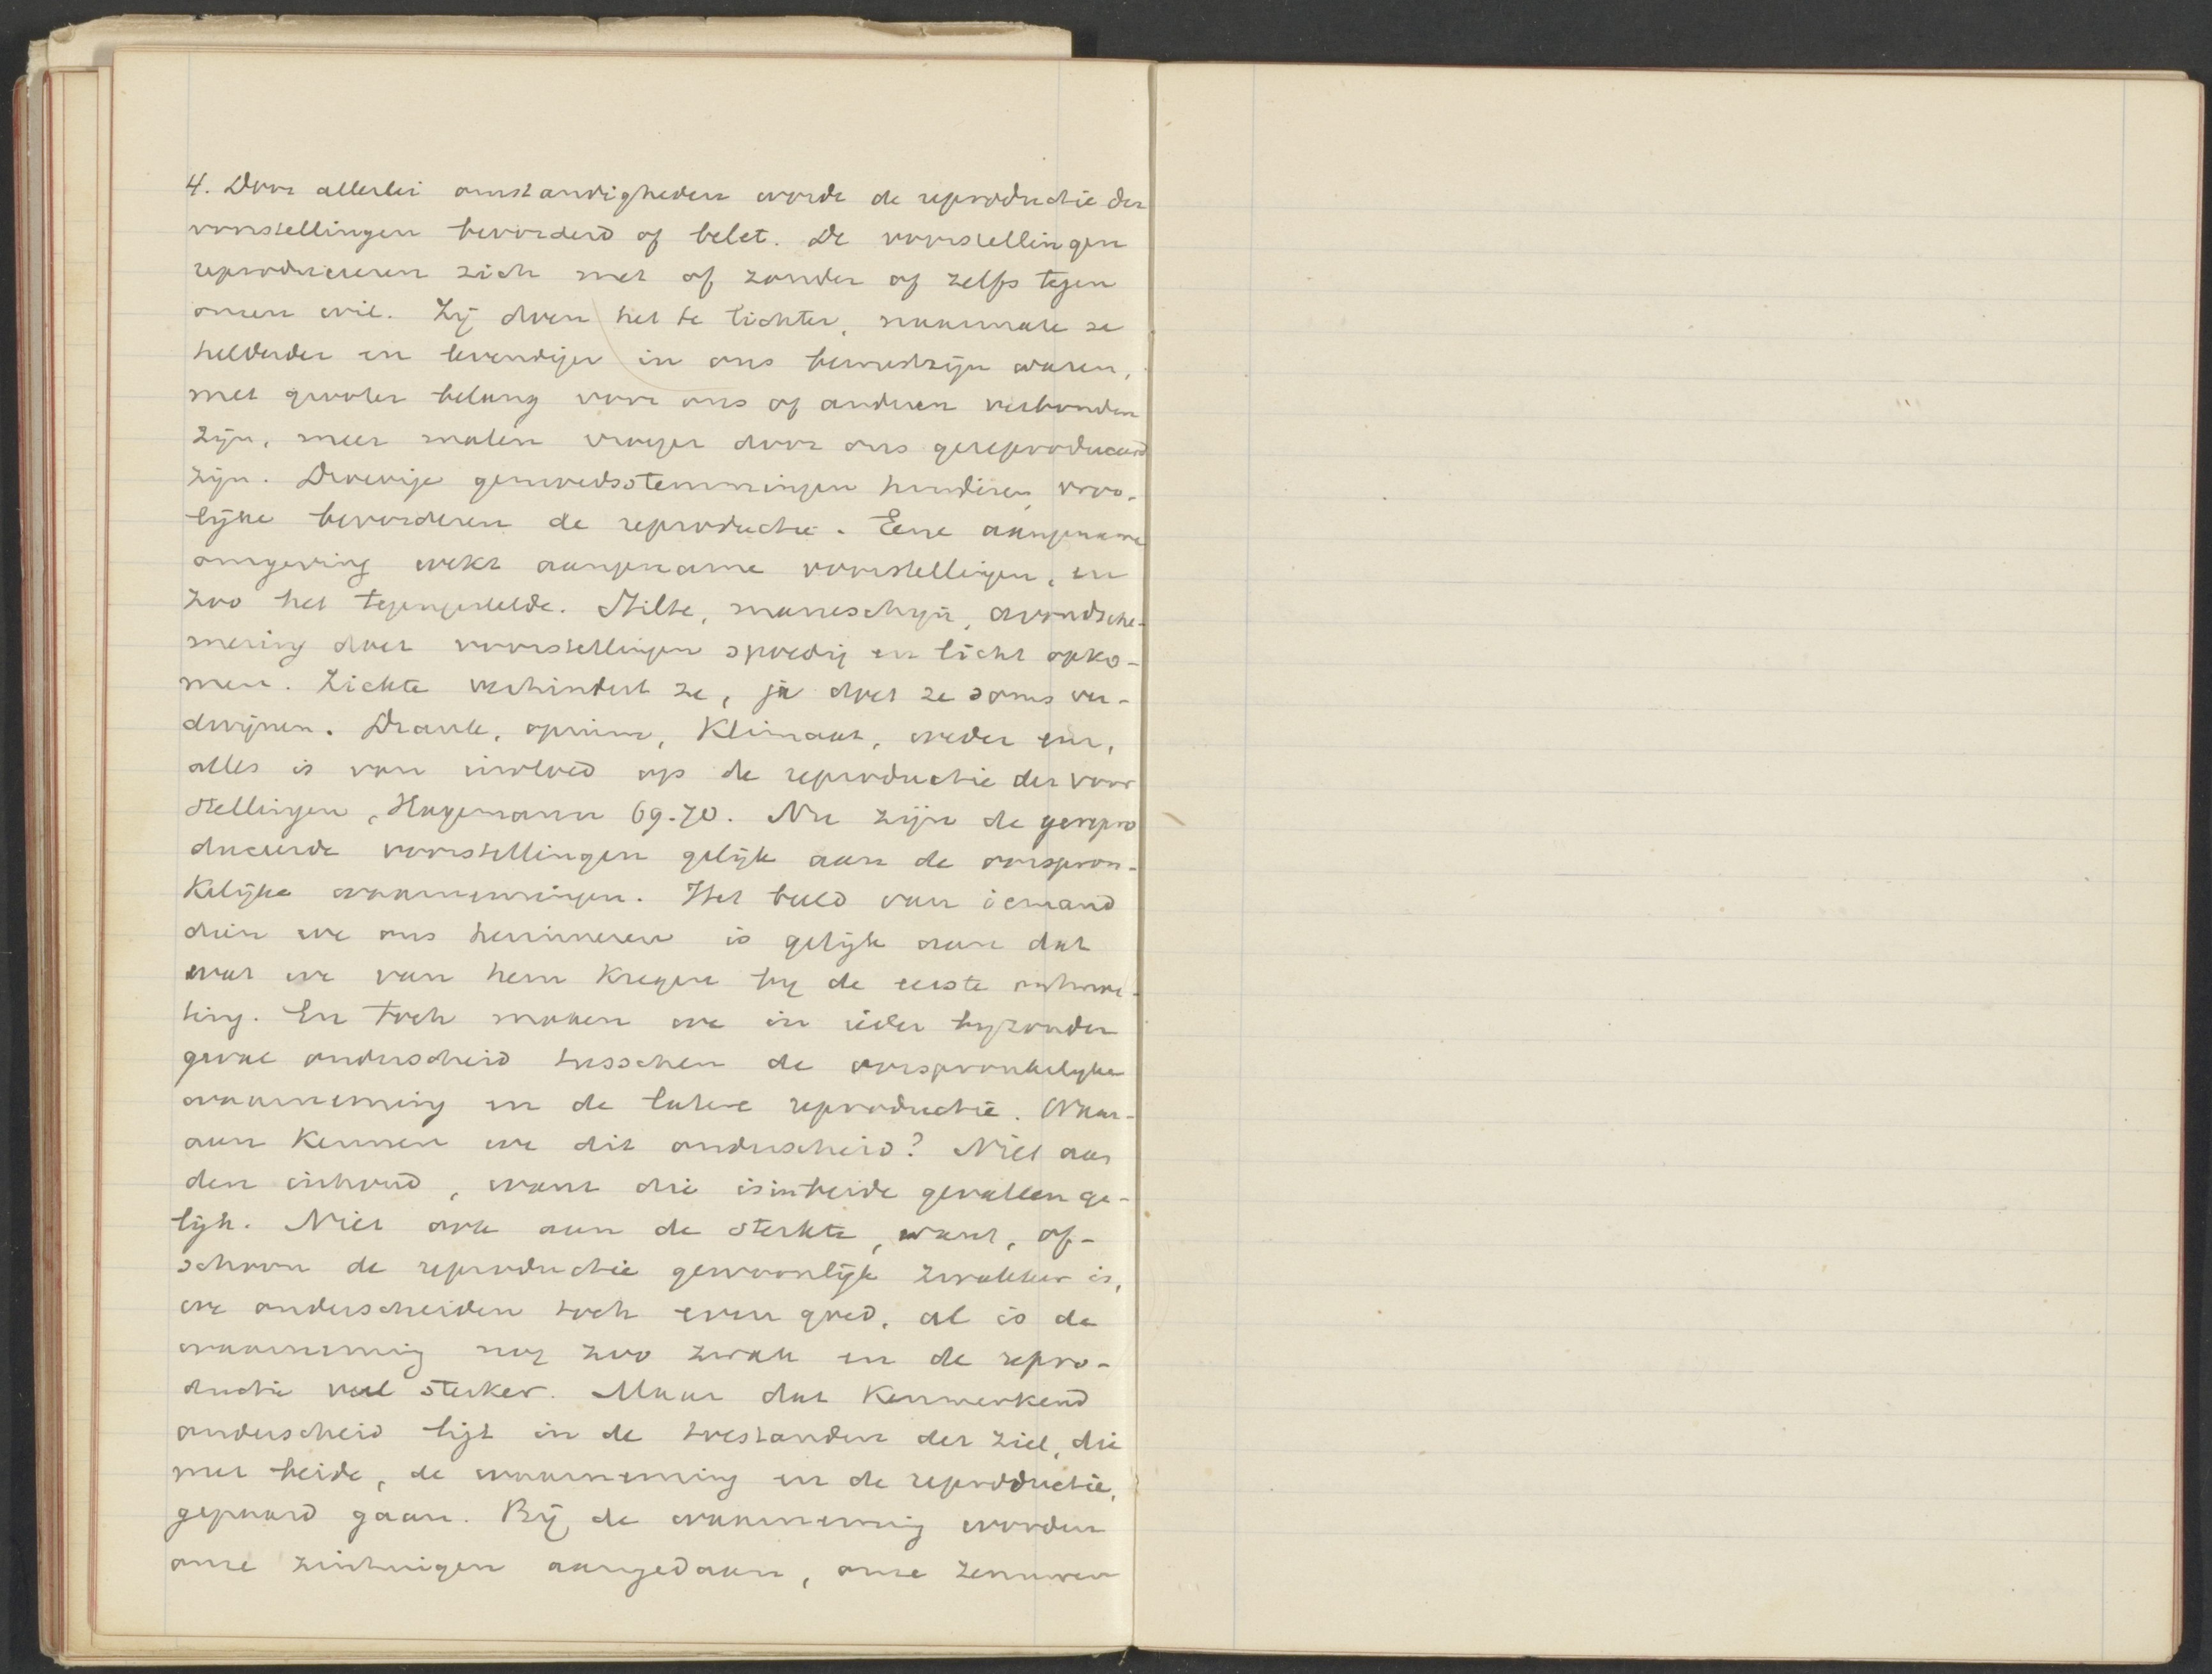 4. Door allerlei omstandigheden wordt de reproductie der
voorstellingen bevorderd of belet. De voorstellingen
reproduceeren zich met of zonder of zelfs tegen
onzen wil. Zij doen het te lichter, naarmate ze
helderder en levendiger in ons bewustzijn waren,
met grooter belang voor ons of anderen verbonden
zijn, meer malen vroeger door ons gereproduceerd
zijn. Droevige gemoedsstemmingen hinderen, vroo-
lijke bevorderen de reproductie. Eene aangename
omgeving wekt aangename voorstellingen, en
zoo het tegengestelde. Stilte, maneschijn, avondsche-
mering doet voorstellingen spoedig en licht opko-
men. Ziekte verhindert ze, ja doet ze soms ver-
dwijnen. Drank, opium, Klimaat, weder enz,
alles is van invloed op de reproductie der voor
stellingen, Hagemann 69.70. Nu zijn de gerepro
duceerde voorstellingen gelijk aan de oorspron-
kelijke waarnemingen. Het beeld van iemand
dien we ons herinneren is gelijk aan dat
wat we van hem kregen bij de eerste ontmoe-
ting. En toch maken we in ieder bijzonder
geval onderscheid tusschen de oorspronkelijke
waarneming en de latere reproductie. Waar-
aan kennen we dit onderscheid? Niet aan
den inhoud, want die is in beide gevallen ge-
lijk. Niet ook aan de sterkte, want, of-
schoon de reproductie gewoonlijk zwakker is,
we onderscheiden toch even goed, al is de
waarneming nog zoo zwak en de repro-
ductie veel sterker. Maar dat kenmerkend
onderscheid ligt in de toestanden der ziel, die
met beide, de waarneming en de reproductie,
gepaard gaan. Bij de waarneming worden
onze zintuigen aangedaan, onze zenuwen